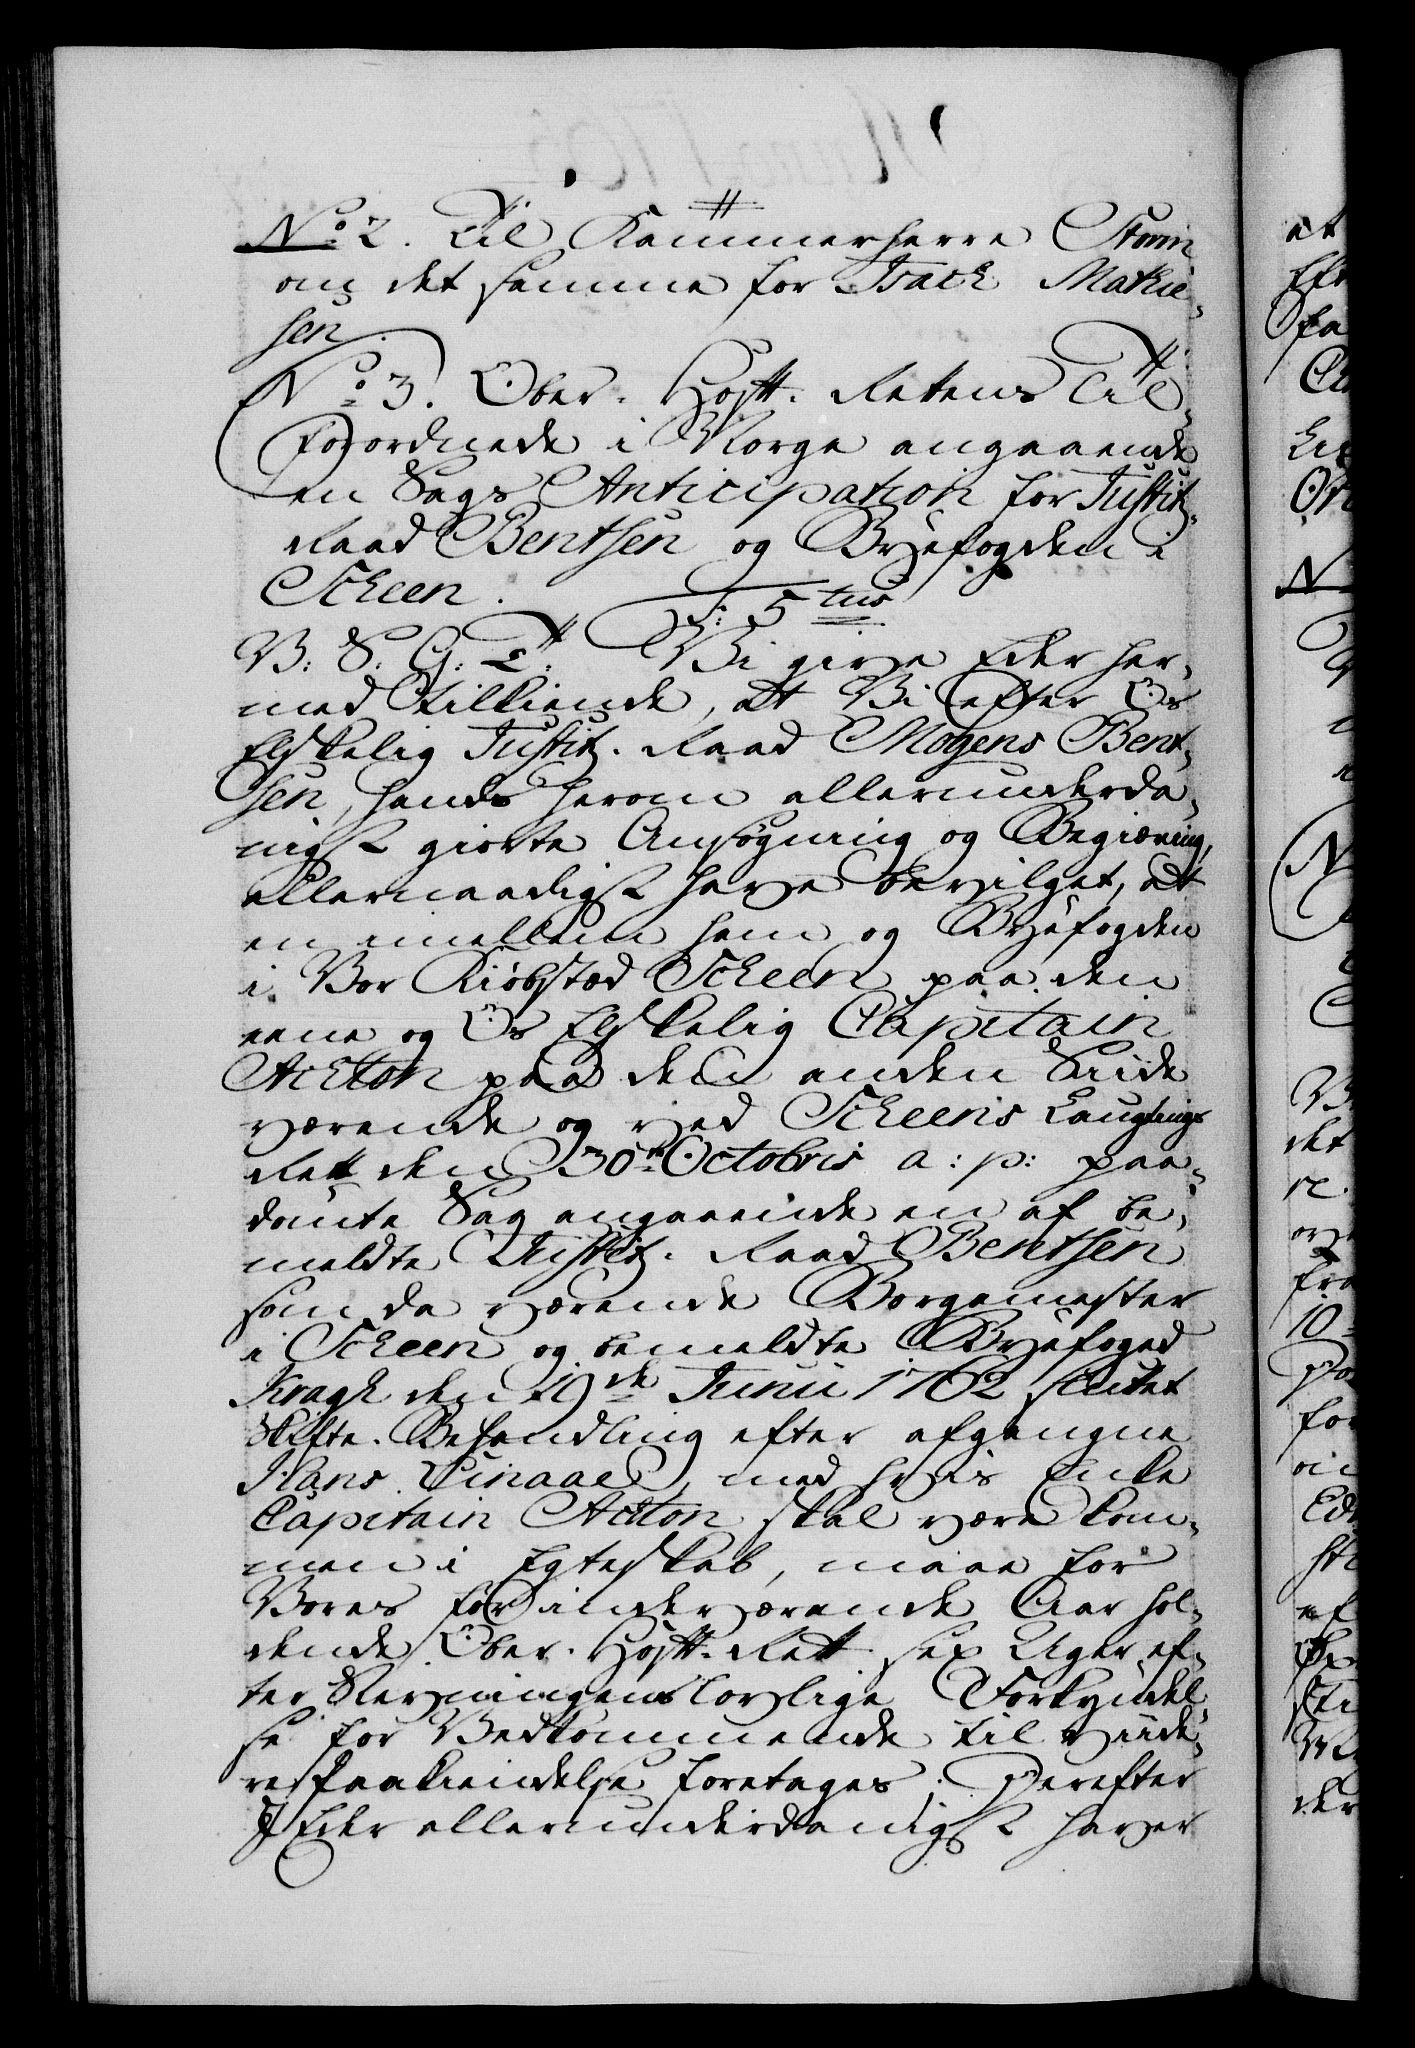 No 2. Til Kammerherre Storm
om det samme for Isach Mathie-
sen.
No 3. Ober-Hoftt-Retens Til-
forordnede i Norge angaaende
en Sags Anticipation for Justitz-
Raad Bentsen og Byefogden i
Scheen.
F: 5 tus
V: S: G: T: Vi give Eder her-
med tilkiende, at Vi efter Os
Elskelig Justitz-Raad Mogens Bent-
sen, hands herom allerunderda-
nigst giorte Ansøgning og Begiæring,
allernaadigst have bevilget, at
en imellem ham og Byefogden
i Vor Kiøbstæd Scheen paa den
eene og Os Elskelig Capitain
Acton paa den anden Siide
værende og ved Scheens Laugtings
Rett den 30te Octobris a: p: paa-
dømte Sag angaaende en af be-
meldte Justitz-Raad Bentsen
som da værende Borgemester
i Scheen og bemeldte Byefoged
Kragh den 19de Junii 1762 sluttet
Skifte-Behandling efter afgangne
Hans, med hvis Enke
Capitain Acton skal være kom-
men i Egteskab, maae for
Vores for indeværende Aar hol-
dende Ober-Hoftt-Rett sex Uger ef-
ter Stevningens lovlige Forkyndel-
se for Vedkommende til viide-
re Paakiendelse foretages. Derefter
I Eder allerunderdanigst haver